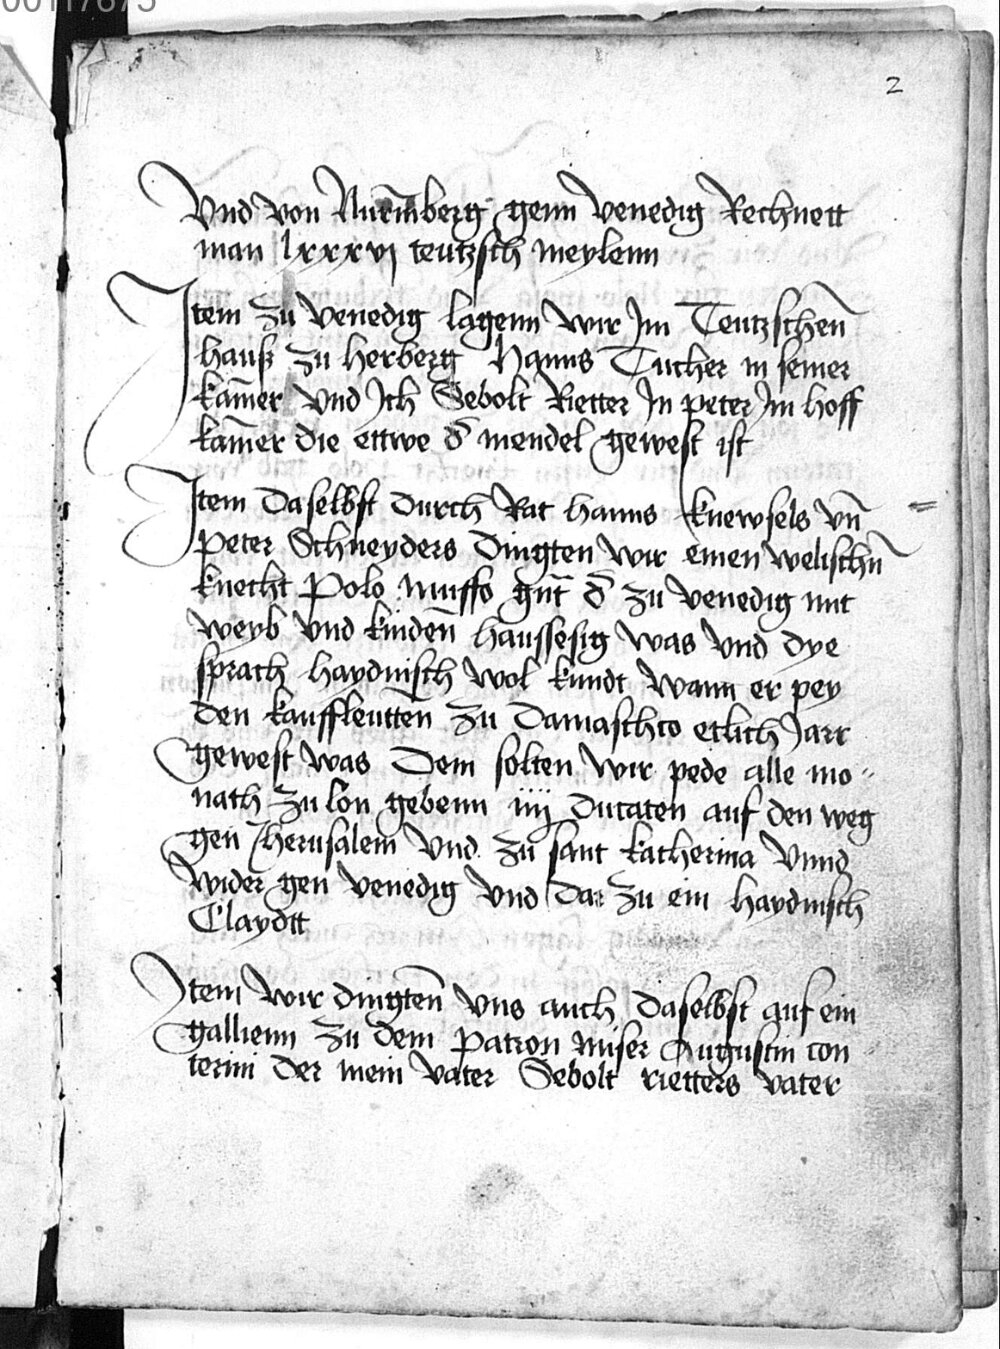 00117675
2
Vnd von Nurm̄berg genn venedig Rechnett
man lxxxvj teutzsch meylenn
Jtem zu venedig lagenn wir Jm Teutzschen̄
hauß zu herberg Hanns Tucher in seiner
kam̄er vnd Jch Sebolt Rietter Jn peter Jm hoff
kam̄er die ettwe d̄ mendel gewest ist
Jtem daselbst durch Rat hanns knewsels vn̄
peter Schneyders dingten wir einen welischn̄
knecht Polo muffo gn̄t d̄ zu venedig mit
weyb vnd kinden̄ haussesig was vnd dye
sprach haydnisch wol kundt wann er pey
den kauffleutten̄ zu damaschco etlich Jarr
gewest was dem solten wir pede alle mo⸗
nath zu lon̄ gebenn iiij ducaten auf den weg
gen̄ Jherusalem vnd zu sant katherina vnnd
wider gen venedig vnd dar zu ein haydnisch
Claydtt
Jtem wir dingten̄ vns auch daselbst auf ein
gallienn zu dem patron miser Augustin con
terini der mein vater Sebolt rietters vater